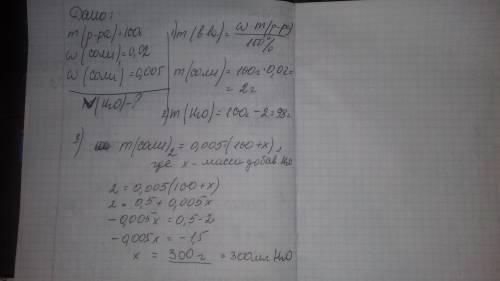 Дано:
m(р-ра)=100г
ω(соли)=0,02
ω(соли)=0,005
V(H₂O)-?
1) m(в-ва)= ω·m(р-ра) / 100%
m(соли)=100г·0,02=
= 2г
2) m(H₂O)=100г-2=98г
3) m(соли)₂=0,005(100+x),
где x - масса добав. H₂O
2=0,005(100+x)
2=0,5+0,005x
-0,005x=0,5-2
-0,005x=-1,5
x = 300г = 300мл H₂O